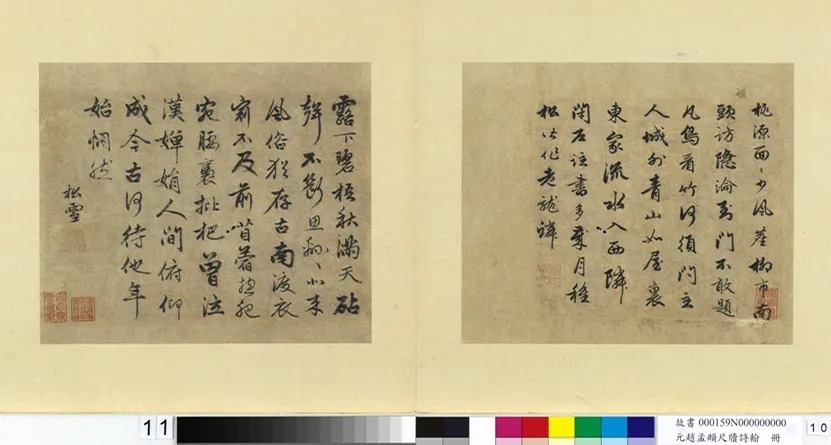 桃源面〻少風塵柳市南
頭訪隱淪到門不敢題
凡鳥看竹何須問主
人城外青山如屋裏
東家流水入西隣
閇戶註書多歲月種
松皆作老龍鱗
露下碧梧秋滿天砧
聲不斷思緜〻北來
風俗猶存古南渡衣
冠不及前苜蓿總肥
宛腰褭枇杷曾泣
漢嬋娟人間俯仰
成今古何待他年
始惘然
松雪
11
故書 000159N000000000
元趙孟頫尺牘詩翰 冊
10